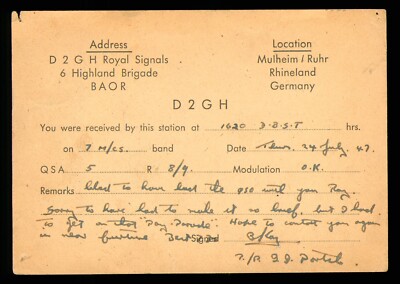 Address
D 2 G H Royal Signals
6 Highland Brigade
BAOR
Location
Mulheim / Ruhr
Rhineland
Germany
D2GH
You were received by this station at 1620 D.B.S.T hrs.
on 7 M/cs. band Date Thur. 24 July. 47.
QSA 5 R 8/9 Modulation O.K.
Remarks Glad to have had the QSO with you Ray.
Sorry to have had to make it so brief, but I had
to get on that "Pay-Parade". Hope to contact you again
in near future Best 73s Signed